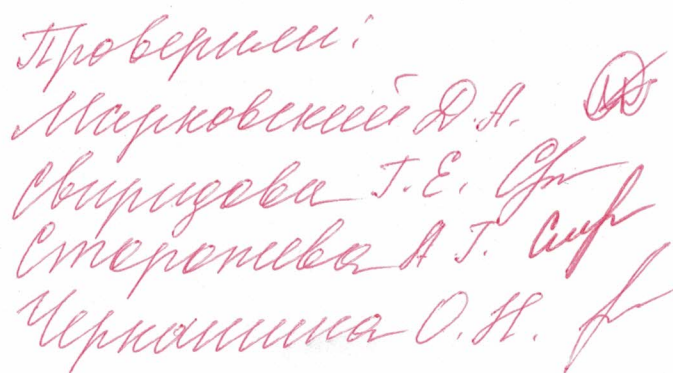 Проверили:
Марковский Д.А.
Свиридова Т.Е.
Сторожева А.Г.
Чернашина О.Н.